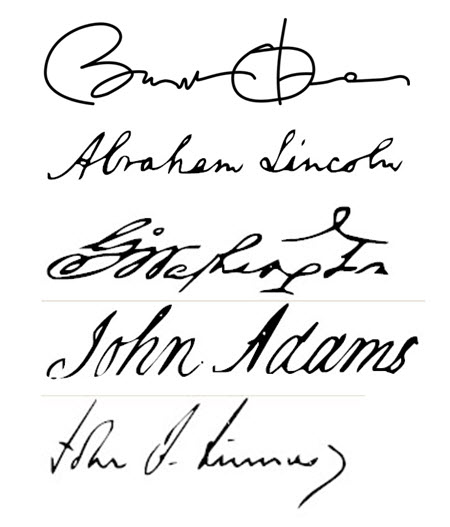 Barack Obama
Abraham Lincoln
G Washington
John Adams
John F. Kennedy